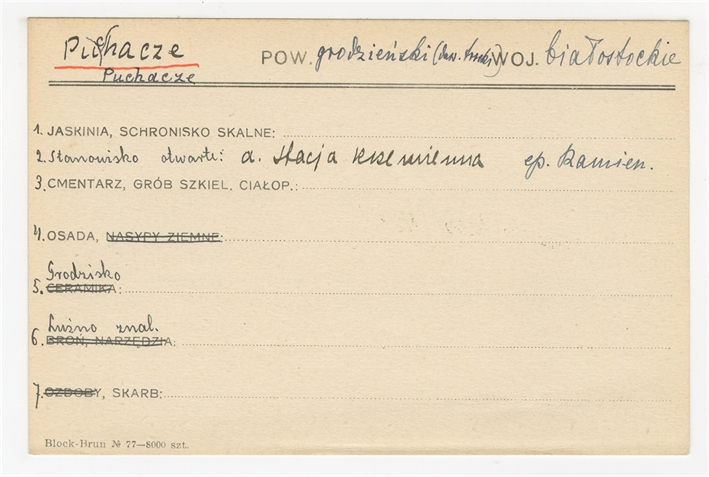 Puchacze POW. grodzieński (daw. trocki) WOJ. białostockie
Puchacze
1. JASKINIA, SCHRONISKO SKALNE:
2. Stanowisko otwarte: a. Stacja krzemienna ep. kamien.
3. CMENTARZ, GRÓB SZKIEL. CIAŁOP.:
4. OSADA, NASYPY ZIEMNE:
Grodzisko
5. CERAMIKA:
Luźno znal.
6. BROŃ, NARZĘDZIA:
7. OZDOBY, SKARB:
Block-Brun № 77—8000 szt.